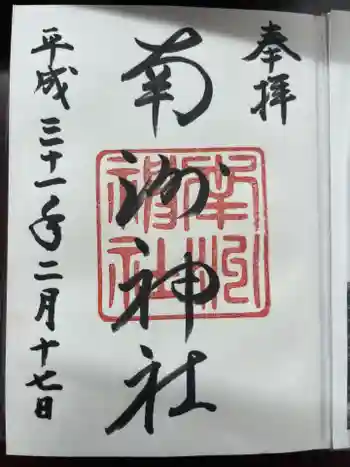 奉拝
南洲神社
南洲神社
平成三十一年二月十七日